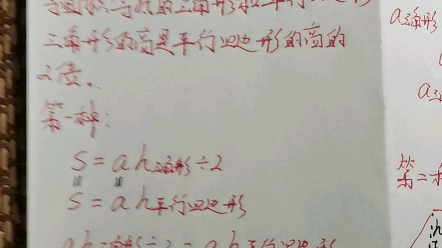 等面积、等底的三角形和平行四边形
三角形的高是平行四边形的高的
2倍。
第一种：
S = a h三角形 ÷ 2
S = a h平行四边形
a h三角形 ÷ 2 = a h平行四边形
a三角形